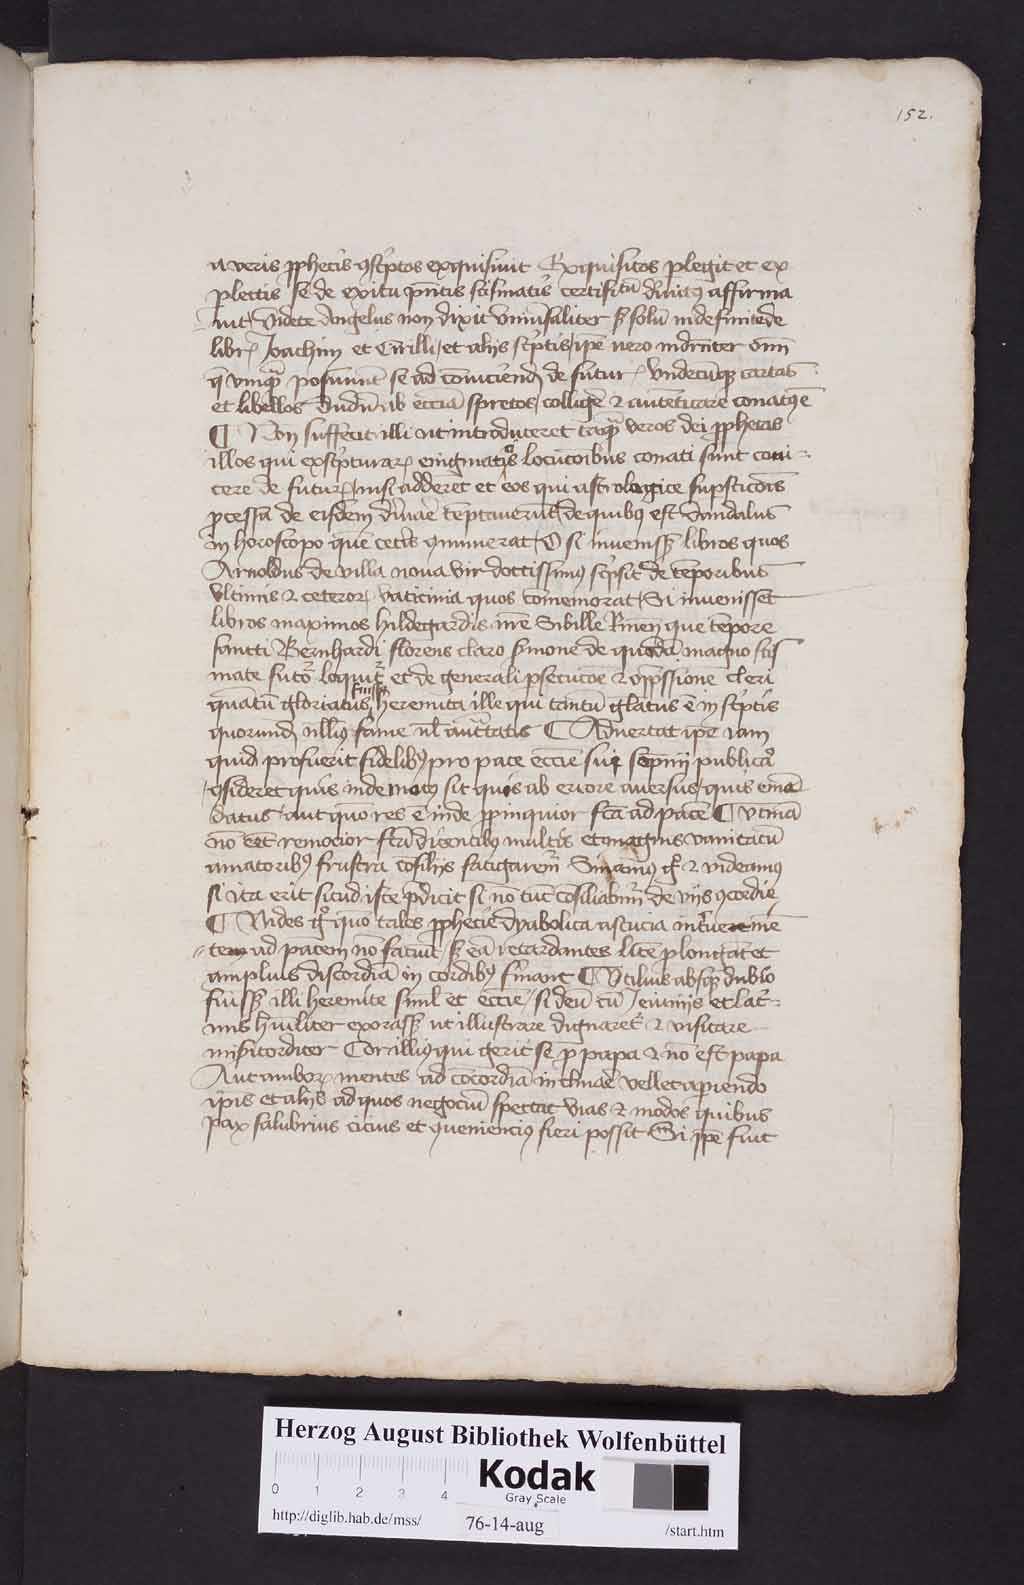 152.
a veris ꝓphetis ꝯsc̄ptos exquisiuit Exquisitos ꝑlegit et ex
ꝑlectis se de exitu p̄ntis scismatis certifitū diuitꝰ affirma
uit Videte Angelus non dixit vniūsaliter sꝫ solū indefinite de
libꝝ Joachim et Cirilli et alijs sc̄ptis ip̄e vero indrn̄ter om̄
q̄ vnq̄ꝫ posuerunt se ad cōniciendū de futurꝭ vndecūqꝫ cartas
et libellos dudū ab ecc̄ia spretos colligē ⁊ autēticare conatꝰ ē
¶ Non suffecit illi ut introduceret tāq̄ꝫ veros dei ꝓphetas
illos qui ex sc̄pturaꝝ enigmatiꝰ locucōibus conati sunt coni=
cere de futurꝭ nisi adderet et eos qui astrologice supsticōis
ꝓcessu de eisdem diuiāre tēptauerūt de quibꝰ est Dandalus
in horoscopo que cetīs ꝯnumerat O si inuenissꝫ libros quos
Arnoldus de villa noua vir doctissimꝰ sc̄psit de tēporibus
vltimis ⁊ ceteroꝝ vaticinia quos cōmemorat Si inuenisset
libros maximos hildegardis Sibille que tēpore
sancti Bernhardi florens claro s̄mone de quodā magno scis
mate futō loquit᷑ et de generali ꝑsecucōe ⁊ opp̄ssione cleri
quātū gloriatus fuissꝫ heremita ille qui tantū glatus ē in sc̄ptis
quorundā nulliꝰ fame ul̄ auc̄tatis ¶ Aduertat ip̄e iam
quid profuerit fidelibꝰ pro pace ecc̄ie sui publicaō
ꝯsideret quis inde motꝰ sit quis ab errore auersus quis emē
datus aut quō res ē inde ꝓpinquior fc̄a ad pacē ¶ vtinā
nō eēt remocior fc̄ā dicentibꝰ multis et magnis vanitatū
amatoribꝰ frustra cōsilijs fatigarem᷑ Sinamꝰ gͦ ⁊ videamꝰ
si ita erit sicud iste p̄dicit si nō tūc cōsiliabim᷑ de vijs ꝯcordie
¶ Vides gͦ quō tales ꝓphecie dyabolica astucia
tem ad pacem nō faciūt sꝫ eā retardantes litē ꝓlongāt et
amplius discordiā in cordibꝰ firmant ¶ Vtilius absqꝫ dubio
fuissꝫ illi heremite simul et ecc̄ie si deū cū Jeiunijs et lac̄i=
mis hūiliter exorassꝫ ut illustrare dignaret᷑ ⁊ visitare
misīcorditer Cor illiꝰ qui gerit se ꝓ papa ⁊ nō est papa
Aut amboꝝ mentes ad cōcordiā inclinaē vellet aperiendo
ip̄is et alijs ad quos negociū spectat vias ⁊ modos quibus
pax salubrius cicius et ꝯueniencius fieri possit Si ip̄e fuit
Herzog August Bibliothek Wolfenbüttel
0 1 2 3 4
Kodak
Gray Scale
http://diglib.hab.de/mss/
76-14-aug
/start.htm